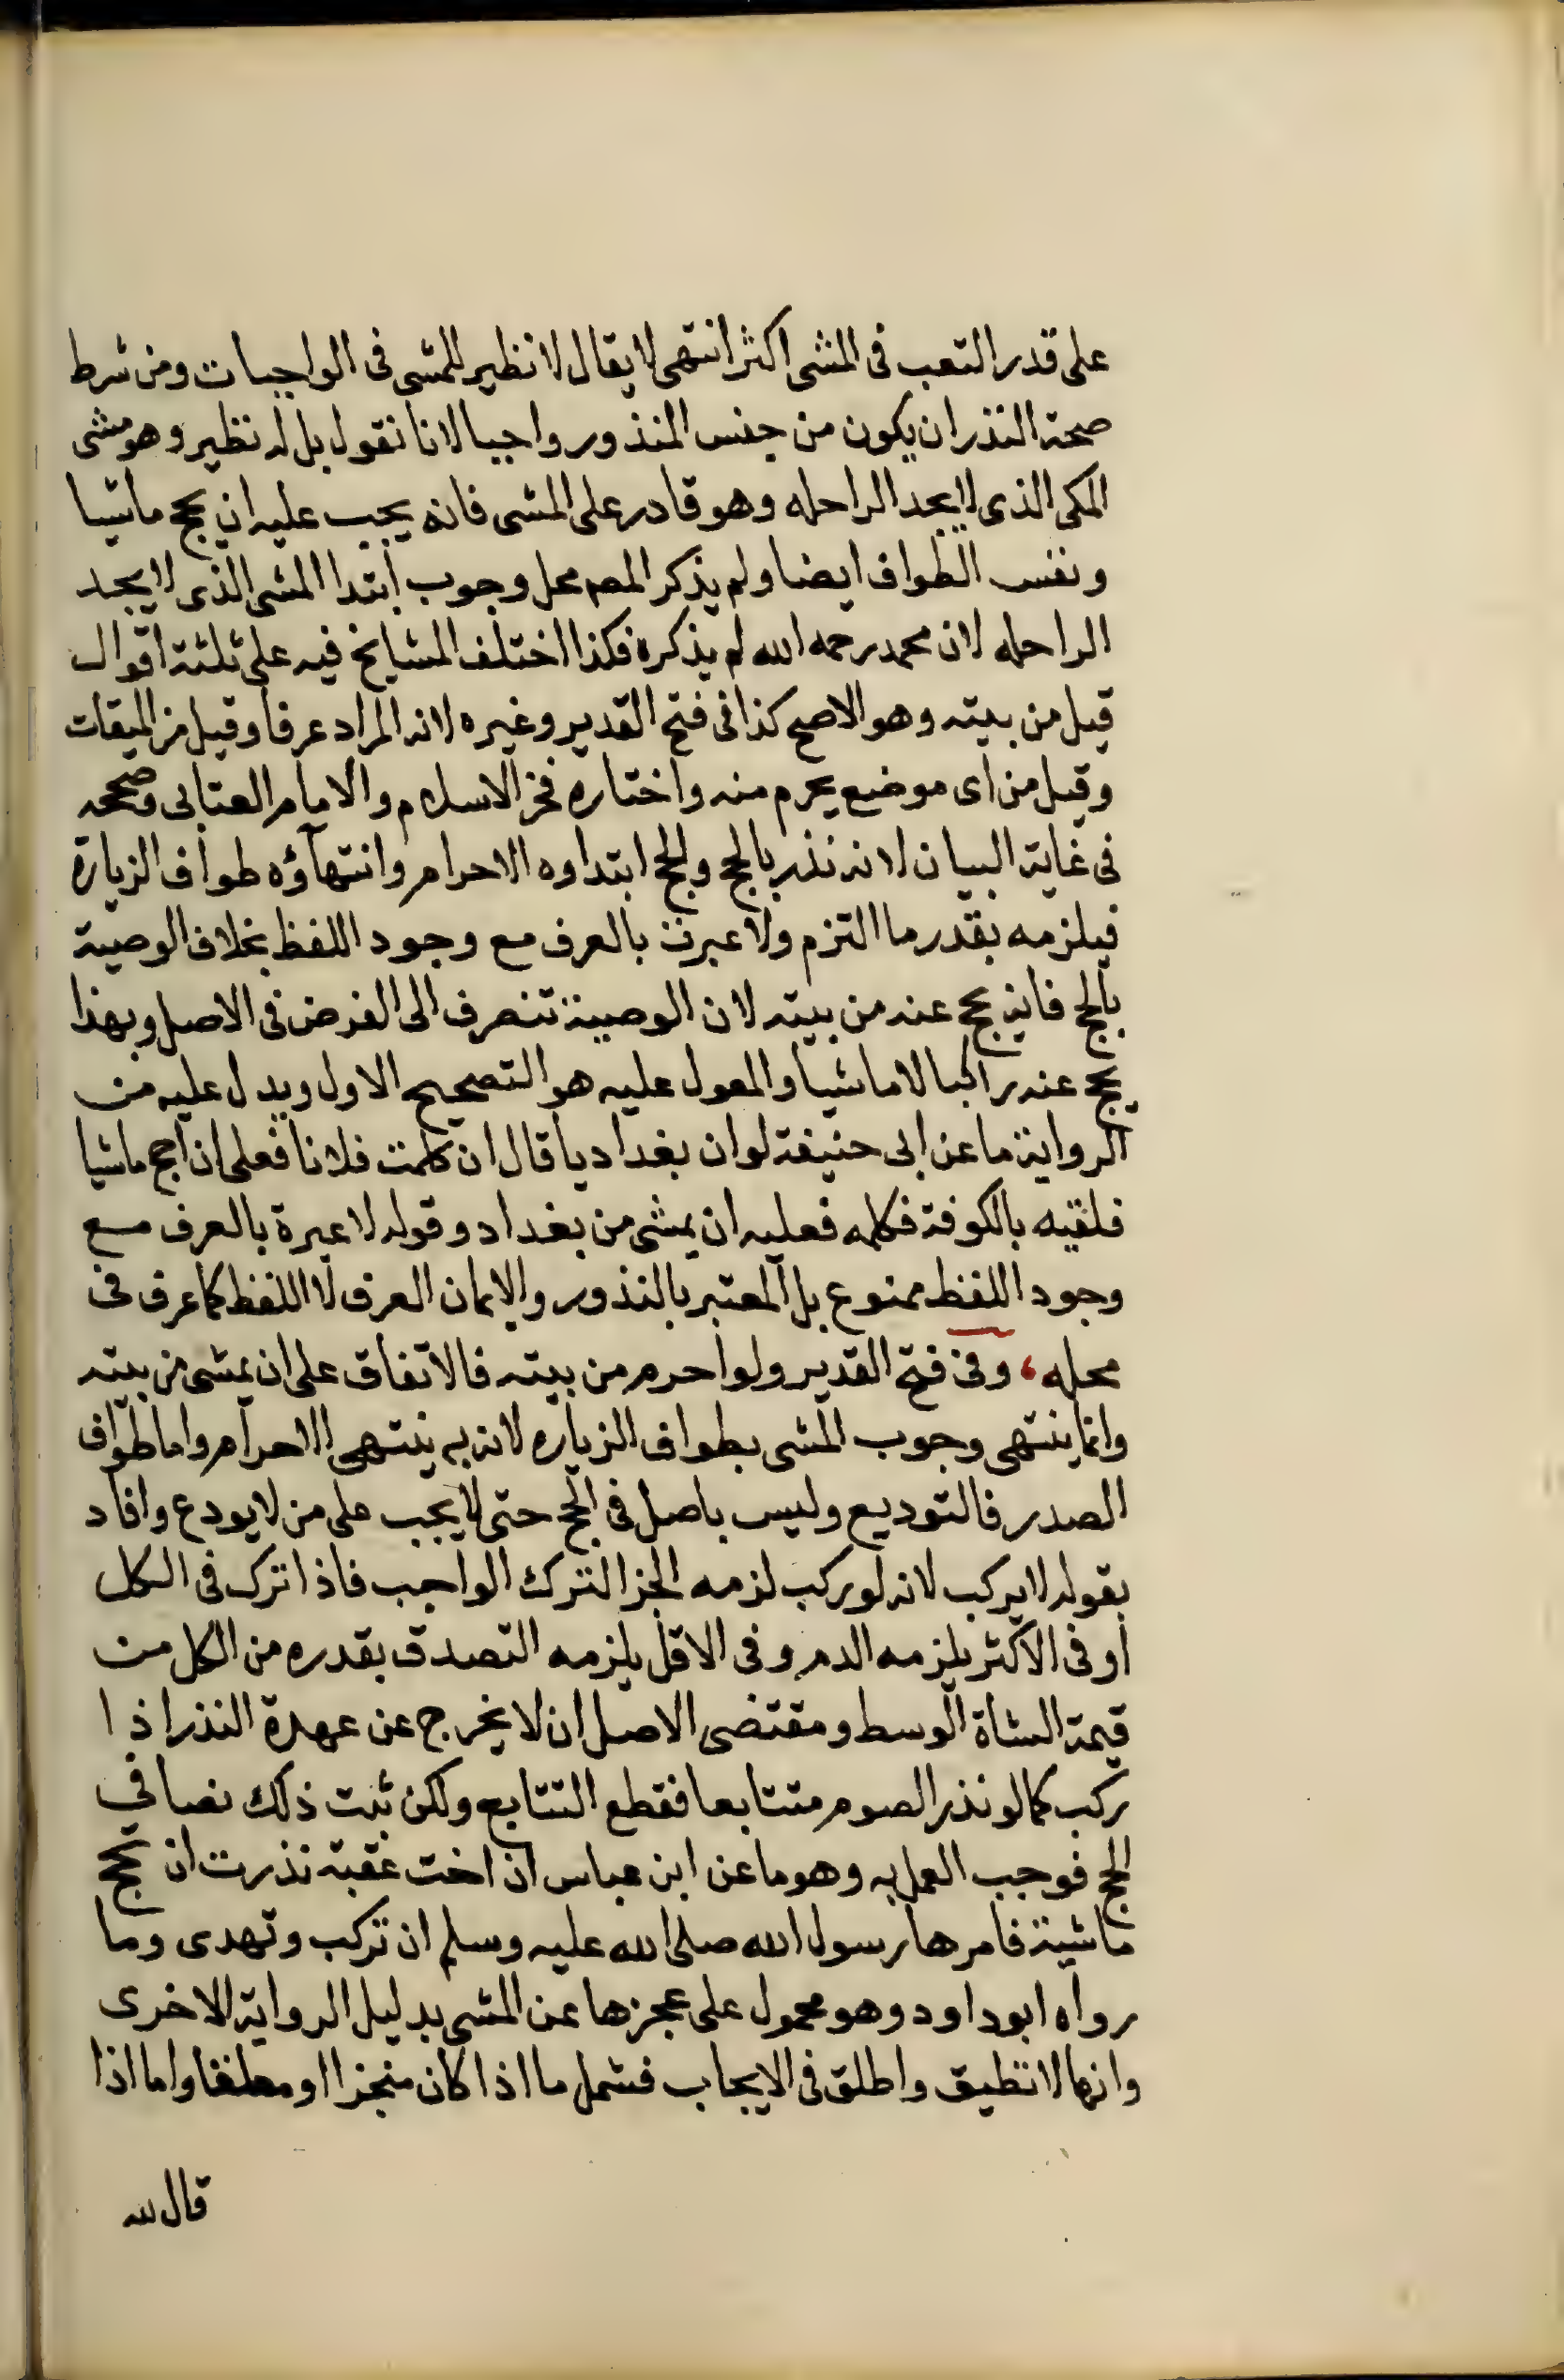 على قدر التعب فى المشى اكثر انتهى لا يقال لا نظير للمشى فى الواجبات ومن شرط
صحة النذر ان يكون من جنس المنذور واجبا لانا نقول بل له نظير وهو مشى
المكى الذى لا يجد الراحله وهو قادر على المشى فانه يجب عليه ان يحج ماشيا
ونفس الطواف ايضا ولم يذكر المصـ محل وجوب ابتدا المشى الذى لا يجد
الراحله لان محمد رحمه الله لم يذكره فكذا اختلف المشايخ فيه على ثلثة اقوال
قيل من بيته وهو الاصح كذا فى فتح القدير وغيره لانه المراد عرفا وقيل من الميقات
وقيل من اى موضع يحرم منه واختاره فخر الاسلام والامام العتابى وصححه
فى غاية البيان لانه نذر بالحج والحج ابتداوه الاحرام وانتهآؤه طواف الزيارة
فيلزمه بقدر ما التزم ولا عبرة بالعرف مع وجود اللفظ بخلاف الوصية
بالحج فانه يحج عنه من بيته لان الوصية تنصرف الى الفرض فى الاصل وبهذا
يحج عنه راكبا لا ماشيا والمعول عليه هو التصحيح الاول ويدل عليه من
الرواية ما عن ابى حنيفة لو ان بغداديا قال ان كلمت فلانا فعلى ان احج ماشيا
فلقيه بالكوفة فكلمه فعليه ان يمشى من بغداد وقوله لا عبرة بالعرف مع
وجود اللفظ ممنوع بل المعتبر بالنذور والايمان العرف لا اللفظ كما عرف فى
محله، وفى فتح القدير ولو احرم من بيته فالاتفاق على ان يمشى من بيته
وانما ينتهى وجوب المشى بطواف الزياره لانه به ينتهى الاحرام واما طواف
الصدر فالتوديع وليس باصل فى الحج حتى لا يجب على من لا يودع وافاد
بقوله لا يركب لانه لو ركب لزمه الجزا لترك الواجب فاذا ترك فى الكل
او فى الاكثر يلزمه الدم وفى الاقل يلزمه التصدق بقدره من الكل من
قيمة الشاة الوسط ومقتضى الاصل ان لا يخرج عن عهدة النذر اذا
ركب كما لو نذر الصوم متتابعا فقطع التتابع ولكن ثبت ذلك نصا فى
الحج فوجب العمل به وهو ما عن ابن عباس ان اخت عقبة نذرت ان تحج
ماشية فامرها رسول الله صلى الله عليه وسلم ان تركب وتهدى وما
رواه ابو داود وهو محمول على عجزها عن المشى بدليل الرواية الاخرى
وانها لا تطيق واطلق فى الايجاب فشمل ما اذا كان منجزا او معلقا واما اذا
قال لله